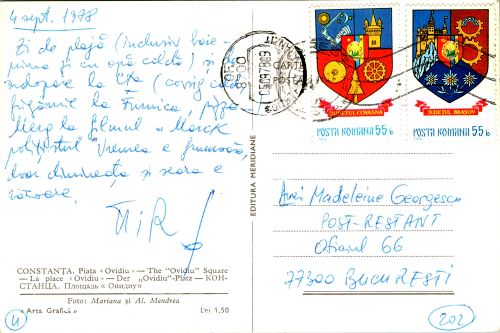 4 sept. 1978
Zi de plajă (inclusiv baie
prima zi cu apă caldă) și
la Cța
Furnica,
Merg la filmul "Marck
polițistul". Vremea e frumoasă,
doar dimineața și seara e
răcoare.
MIR
CONSTANȚA. Piața «Ovidiu» — The "Ovidiu" Square
— La place «Ovidiu» — Der „Ovidiu"-Platz — КОН-
СТАНЦА. Площадь «Овидиу»
Foto: Mariana și Al. Mendrea
« Arta Grafică » Lei 1,50
EDITURA MERIDIANE
CARTE
POSTA
JUDEȚUL COVASNA
POSTA ROMANA 55b
JUDEȚUL BRAȘOV
POSTA ROMANA 55b
Madeleine Georgescu
POST-RESTANT
Oficiul 66
77300 BUCUREȘTI
202